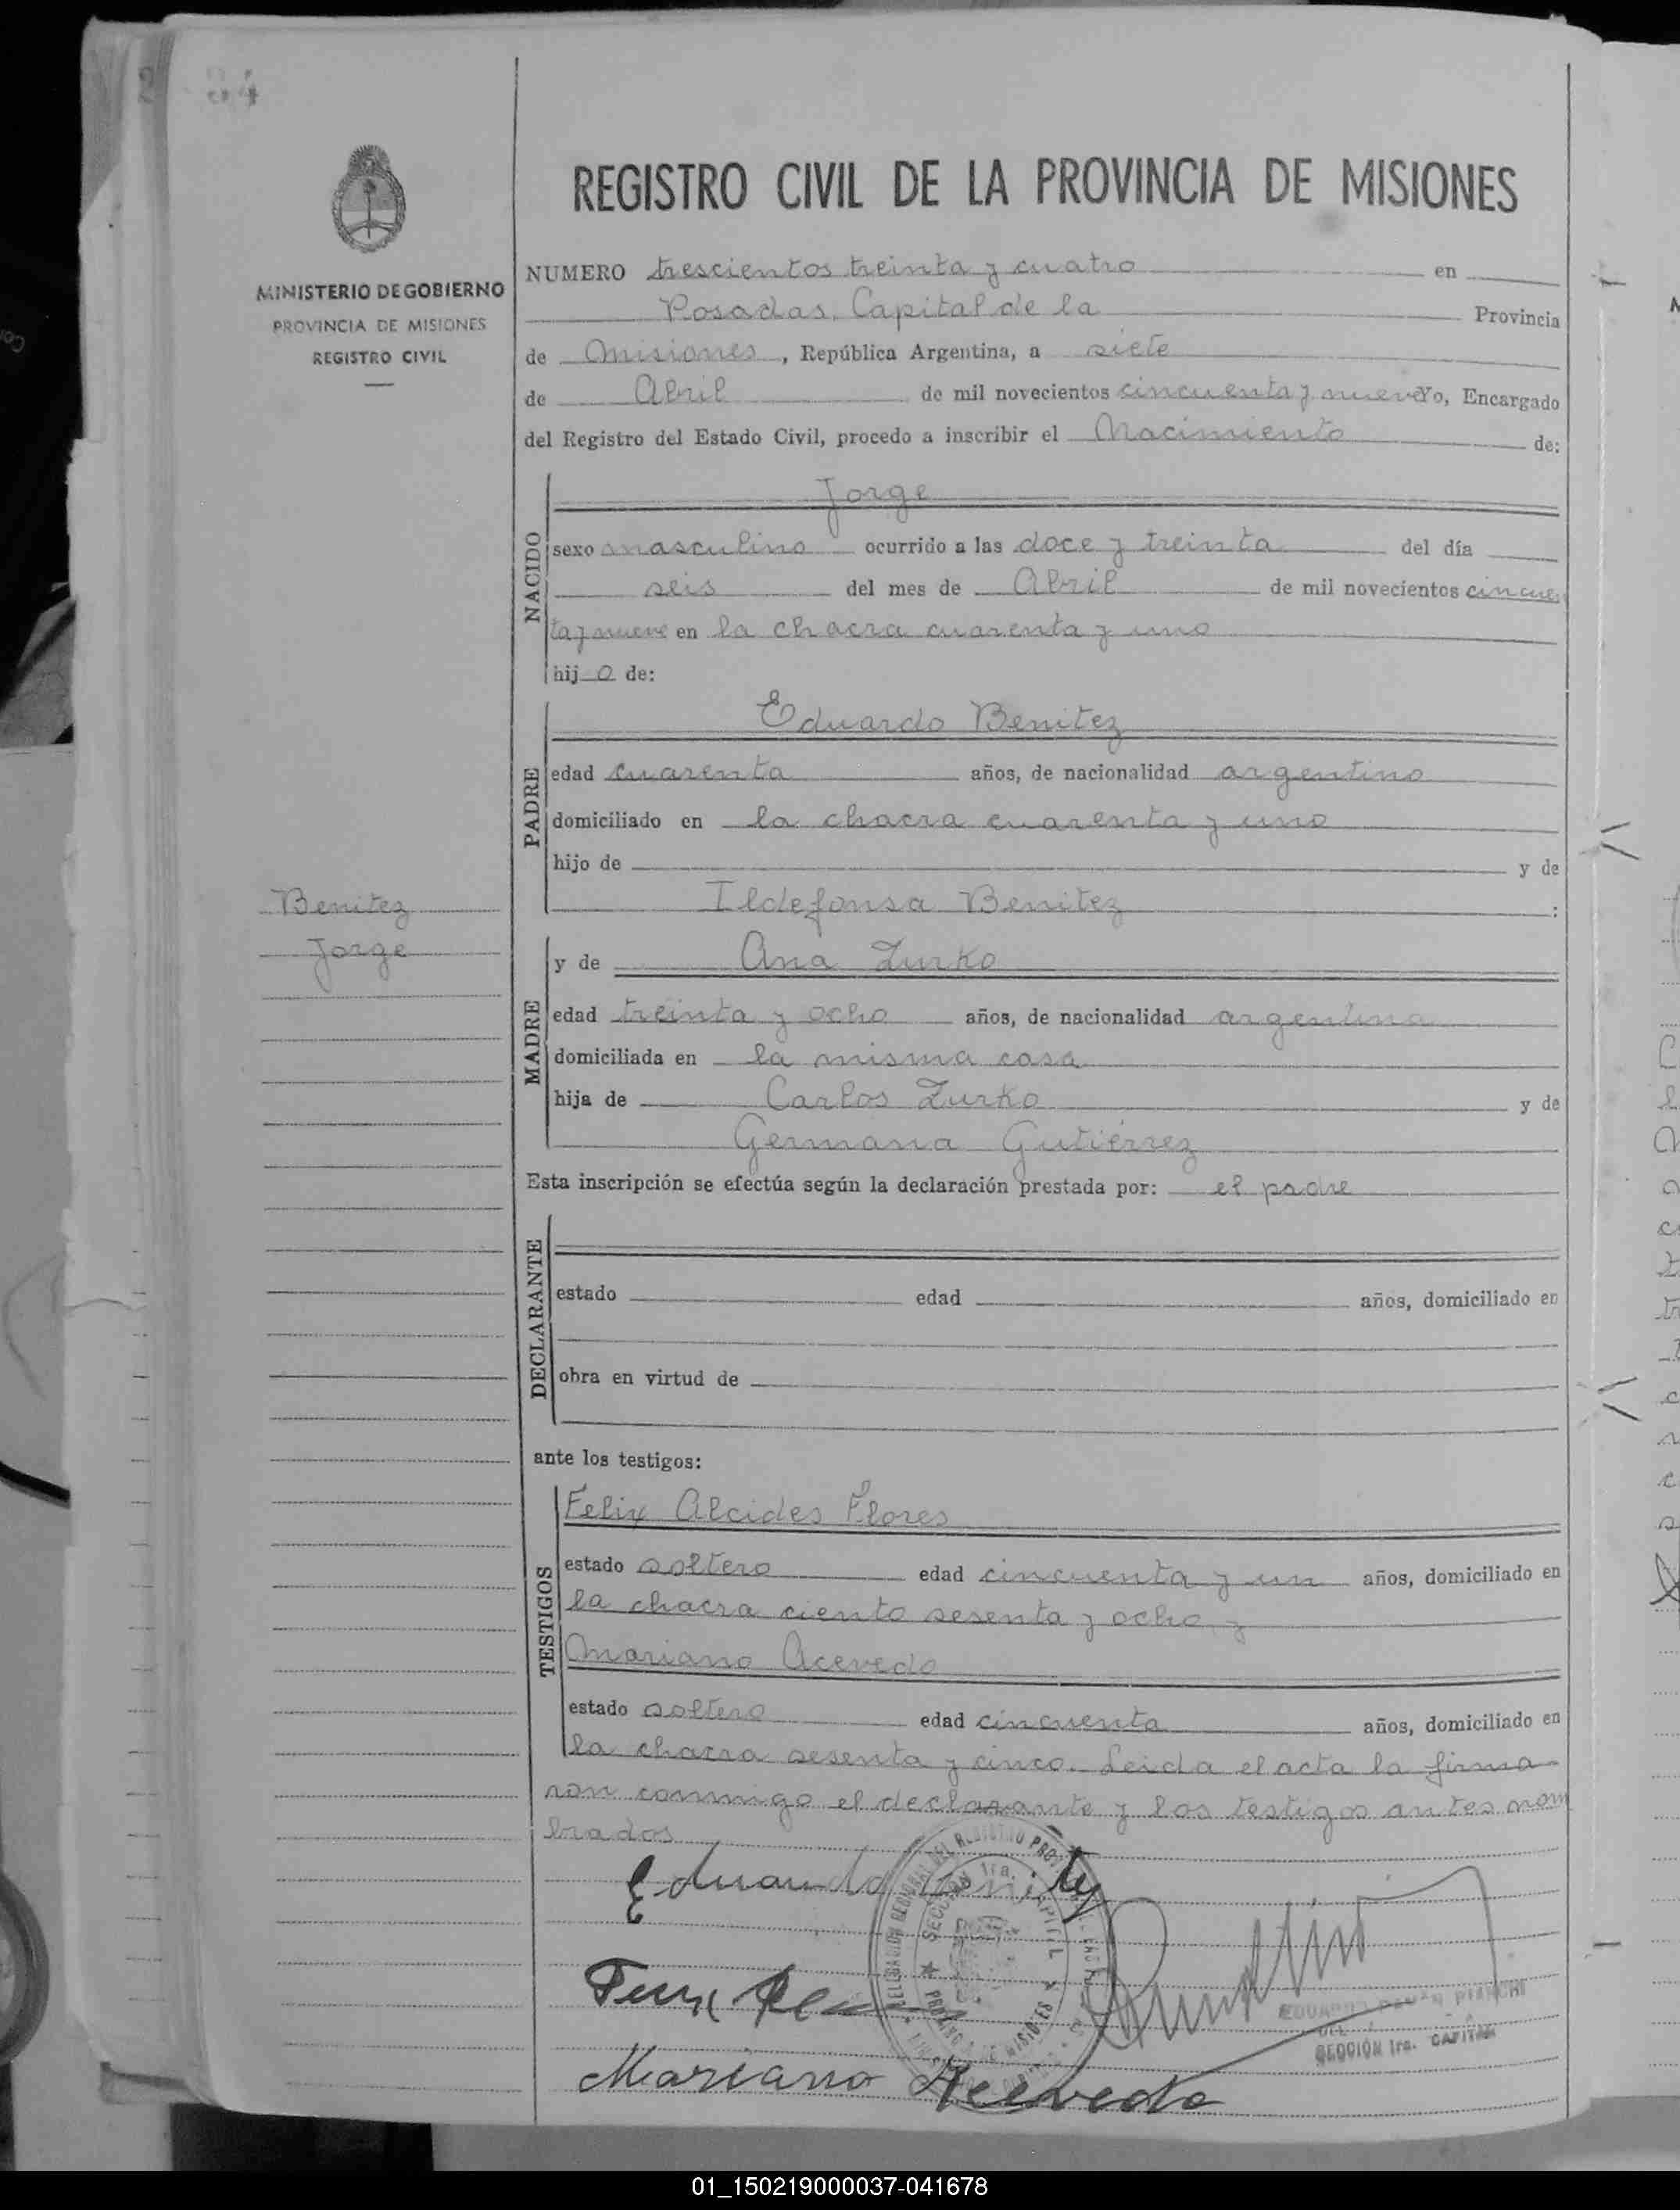 34
REGISTRO CIVIL DE LA PROVINCIA DE MISIONES
MINISTERIO DE GOBIERNO
PROVINCIA DE MISIONES
REGISTRO CIVIL
NUMERO trescientos treinta y cuatro en
Posadas, Capital de la Provincia
de Misiones, República Argentina, a siete
de Abril de mil novecientos cincuenta y nueve Yo, Encargado
del Registro del Estado Civil, procedo a inscribir el Nacimiento de:
NACIDO
Jorge
sexo masculino ocurrido a las doce y treinta del día
seis del mes de Abril de mil novecientos cincuen
ta y nueve en la chacra cuarenta y uno
hij o de:
PADRE
Eduardo Benitez
edad cuarenta años, de nacionalidad argentino
domiciliado en la chacra cuarenta y uno
hijo de y de
Ildefonsa Benitez :
Benitez
Jorge
MADRE
y de Ana Zurko
edad treinta y ocho años, de nacionalidad argentina
domiciliada en la misma casa
hija de Carlos Zurko y de
Germana Gutiérrez
Esta inscripción se efectúa según la declaración prestada por: el padre
DECLARANTE
estado edad años, domiciliado en
obra en virtud de
ante los testigos:
TESTIGOS
Felix Alcides Flores
estado soltero edad cincuenta y un años, domiciliado en
la chacra ciento sesenta y ocho y
Mariano Acevedo
estado soltero edad cincuenta años, domiciliado en
la chacra sesenta y cinco. Leida el acta la firma
ron conmigo el declarante y los testigos antes nom
brados
Eduardo Benitez
SECCION 1ra. CAPITAL
PROVINCIA DE MISIONES
EDUARDO BIANCHI
SECCION 1ra. CAPITAL
Mariano Acevedo
01_150219000037-041678